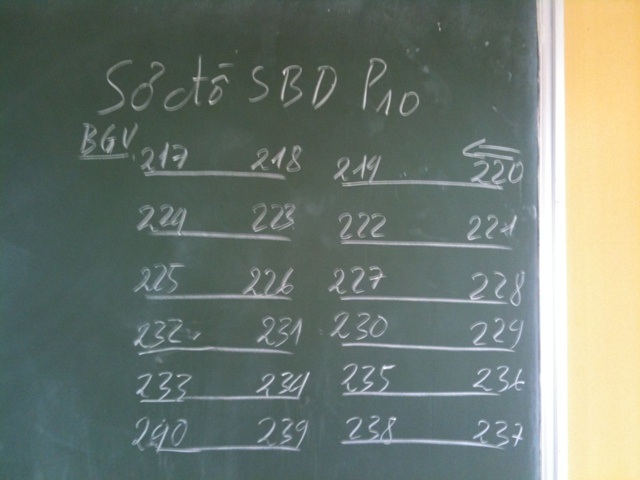 Sơ đồ SBD P10
BGV
217 218 219 220
224 223 222 221
225 226 227 228
232 231 230 229
233 234 235 236
240 239 238 237